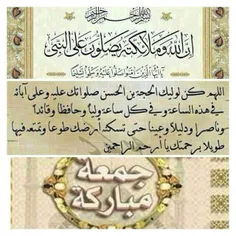 بسم الله الرحمن الرحيم
إن الله وملائكته يصلون على النبي
يا أيها الذين آمنوا صلوا عليه وسلموا تسليما
اللهم كن لوليك الحجة بن الحسن صلواتك عليه وعلى آبائه
في هذه الساعة وفي كل ساعة وليا وحافظا وقائدا
وناصرا ودليلا وعينا حتى تسكنه أرضك طوعا وتمتعه فيها
طويلا برحمتك يا أرحم الراحمين
جمعة
مباركة